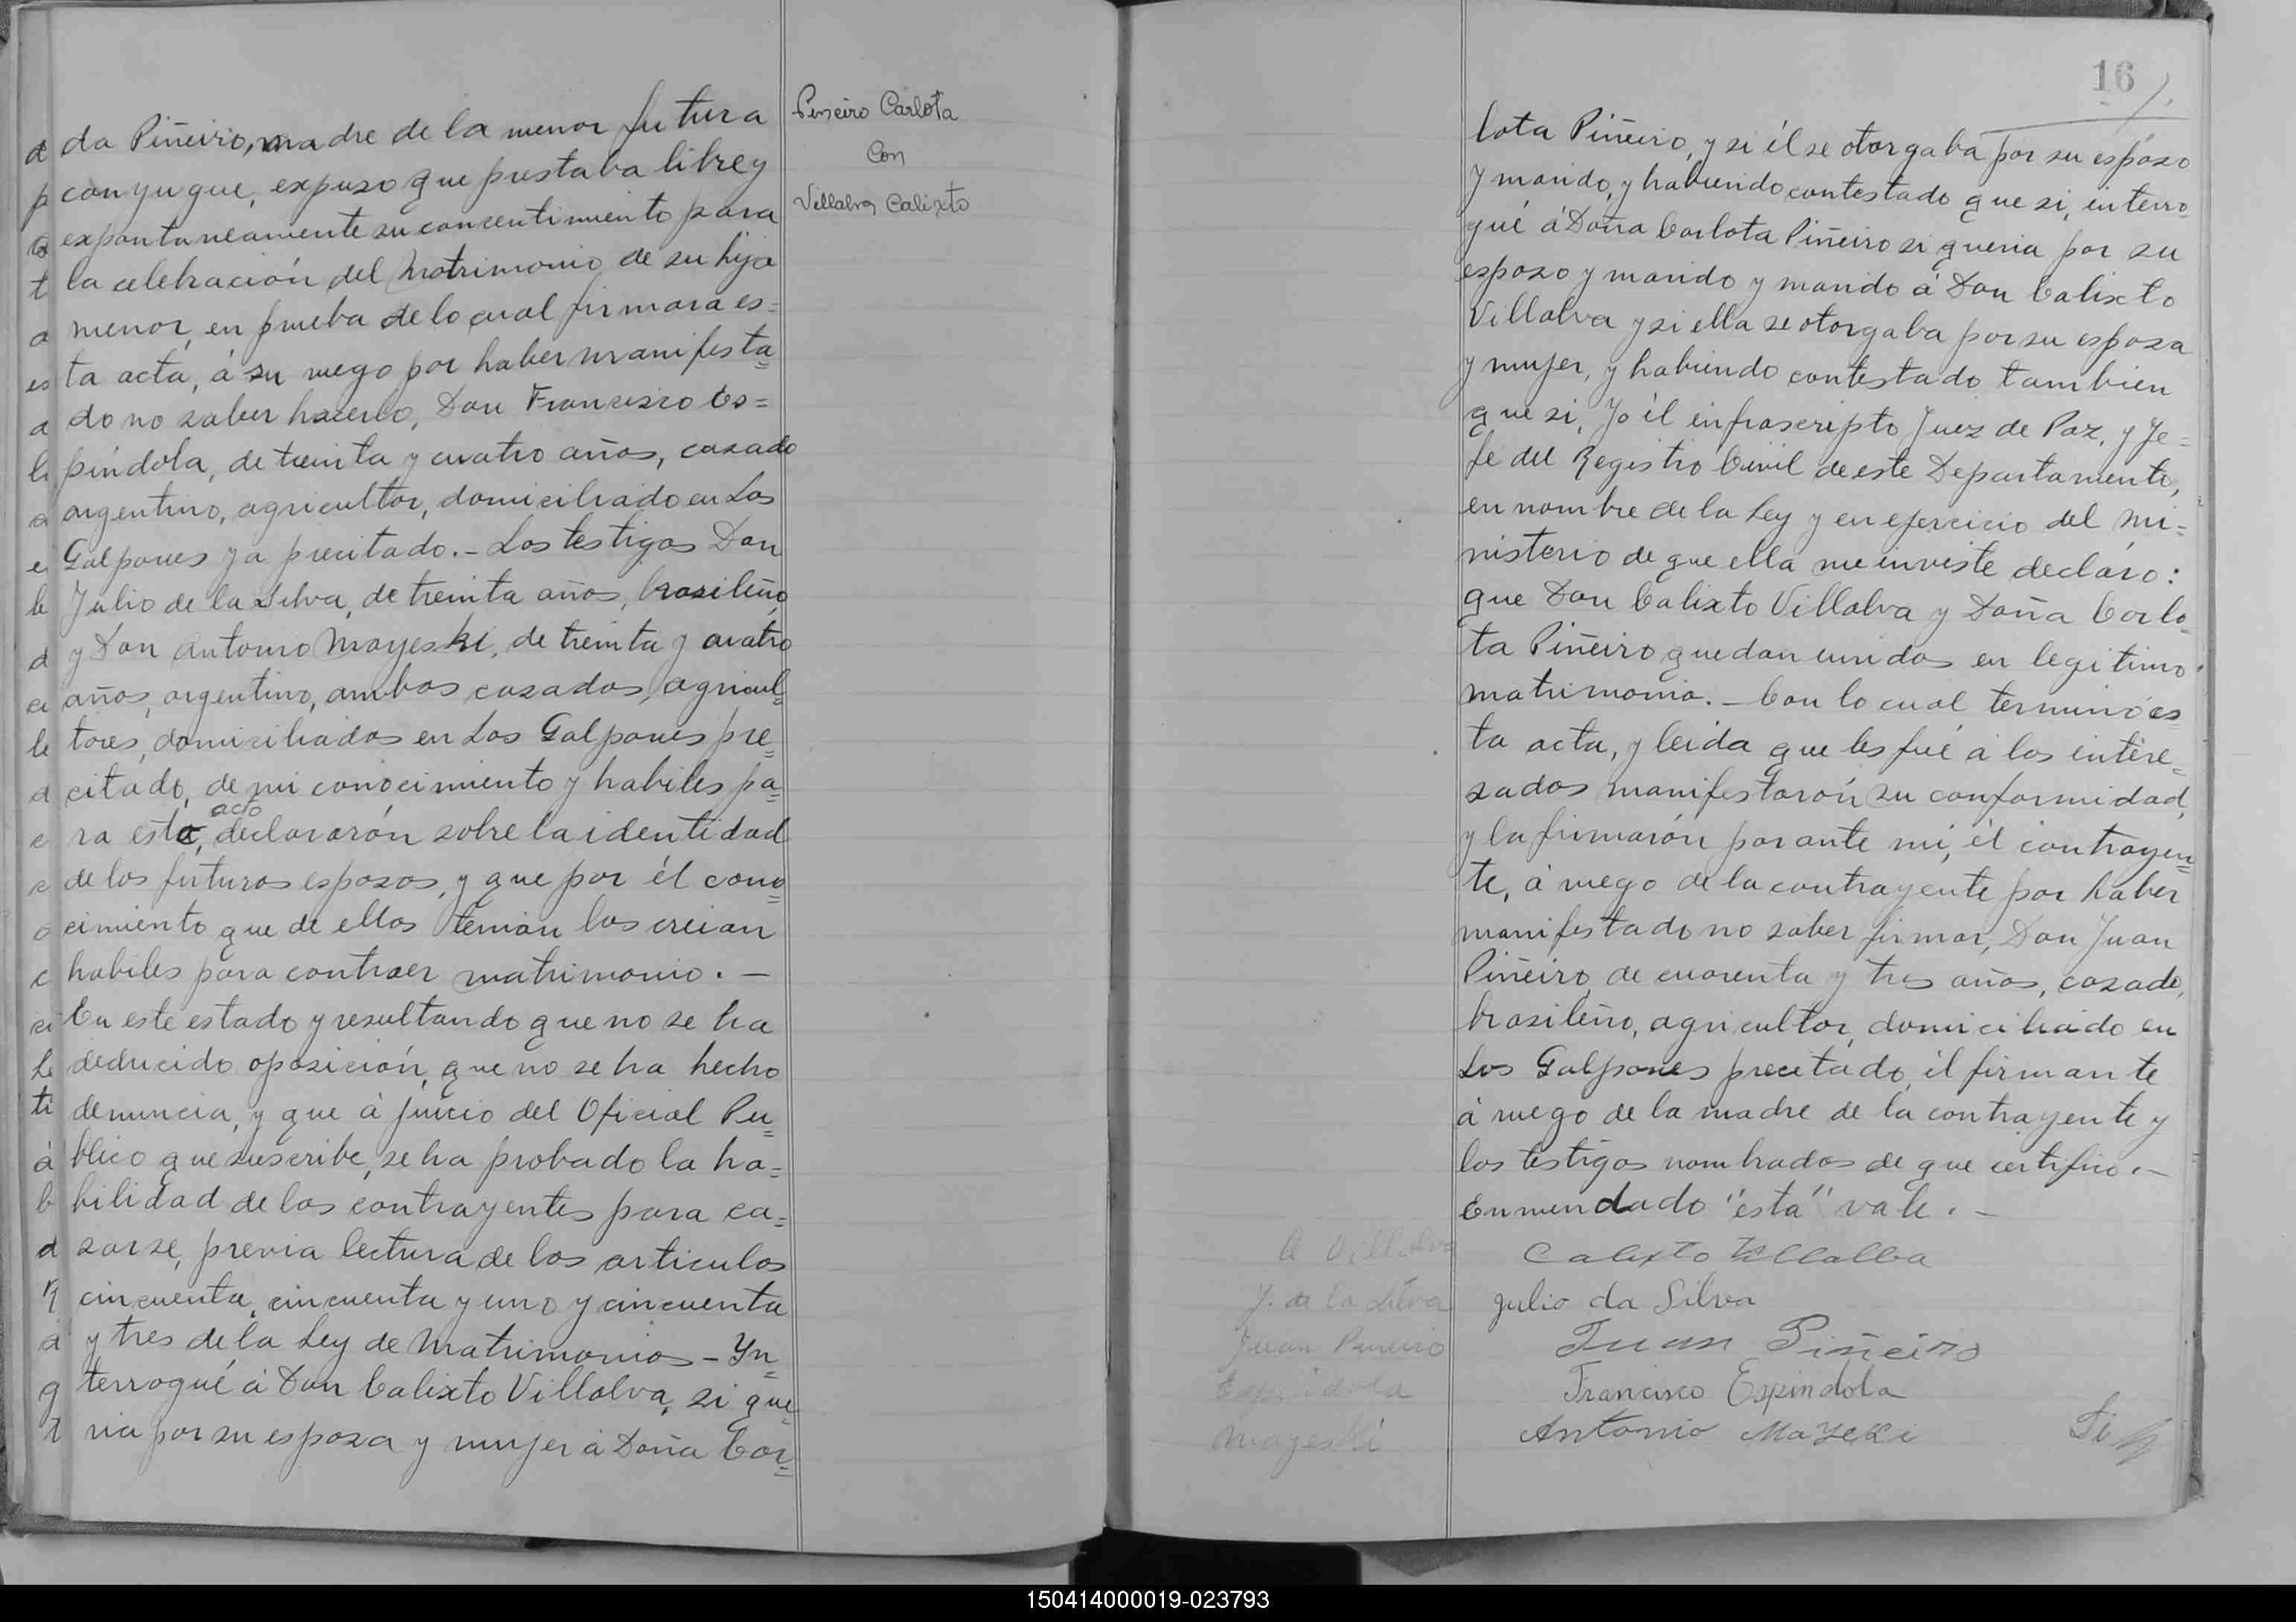 da Piñeiro, madre de la menor futura
conyugue, expuso que prestaba libre y
expontaneamente su consentimiento para
la celebración del Matrimonio de su hija
menor, en prueba de lo cual firmara es=
ta acta, á su ruego por haber manifesta=
do no saber hacerlo, Don Francisco Es=
pindola, de treinta y cuatro años, casado
argentino, agricultor, domiciliado en Los
Galpones ya precitado.- Los testigos Don
Julio de la Silva, de treinta años, brasileño
y Don Antonio Mayeski, de treinta y cuatro
años, argentino, ambos casados, agricul=
tores, domiciliados en Los Galpones pre=
citado, de mi conocimiento y habiles pa=
acto
ra este, declararón sobre la identidad
de los futuros esposos, y que por él cono=
cimiento que de ellos tenian los creian
habiles para contraer matrimonio.-
En este estado y resultando que no se ha
deducido oposición, que no se ha hecho
denuncia, y que á juicio del Oficial Pu=
blico que suscribe, se ha probado la ha=
bilidad de los contrayentes para ca=
sarse, previa lectura de los articulos
cincuenta, cincuenta y uno y cincuenta
y tres de la Ley de Matrimonios - Yn=
terrogué á Don Calixto Villalva, si que=
ria por su esposa y mujer á Doña Car=
Pineiro Carlota
Con
Villalva Calixto
16
lota Piñeiro, y si él se otorgaba por su esposo
y marido, y habiendo contestado que si, interro=
gué á Doña Carlota Piñeiro si queria por su
esposo y marido y marido á Don Calixto
Villalva y si ella se otorgaba por su esposa
y mujer, y habiendo contestado tambien
que si, Yo él infrascripto Juez de Paz, y Je=
fe del Registro Civil de este Departamento,
en nombre de la Ley y en ejercicio del mi=
nisterio de que ella me inviste declaro:
que Don Calixto Villalva y Doña Carlo=
ta Piñeiro quedan unidos en legitimo
matrimonio.- Con lo cual terminó es
ta acta, y leida que les fué á los intere=
sados manifestarón su conformidad,
y la firmarón por ante mi, él contrayen=
te, á ruego de la contrayente por haber
manifestado no saber firmar, Don Juan
Piñeiro, de cuarenta y tres años, casado,
brasileño, agricultor, domiciliado en
Los Galpones precitado, él firmante
á ruego de la madre de la contrayente y
los testigos nombrados de que certifico.-
Enmendado "esta" vale.-
C Villalva
J. de la Silva
Juan Pineiro
Espindola
Mayeski
Calixto Villalba
Julio da Silva
Juan Piñeiro
Francisco Espindola
Antonio Mayeki
150414000019-023793